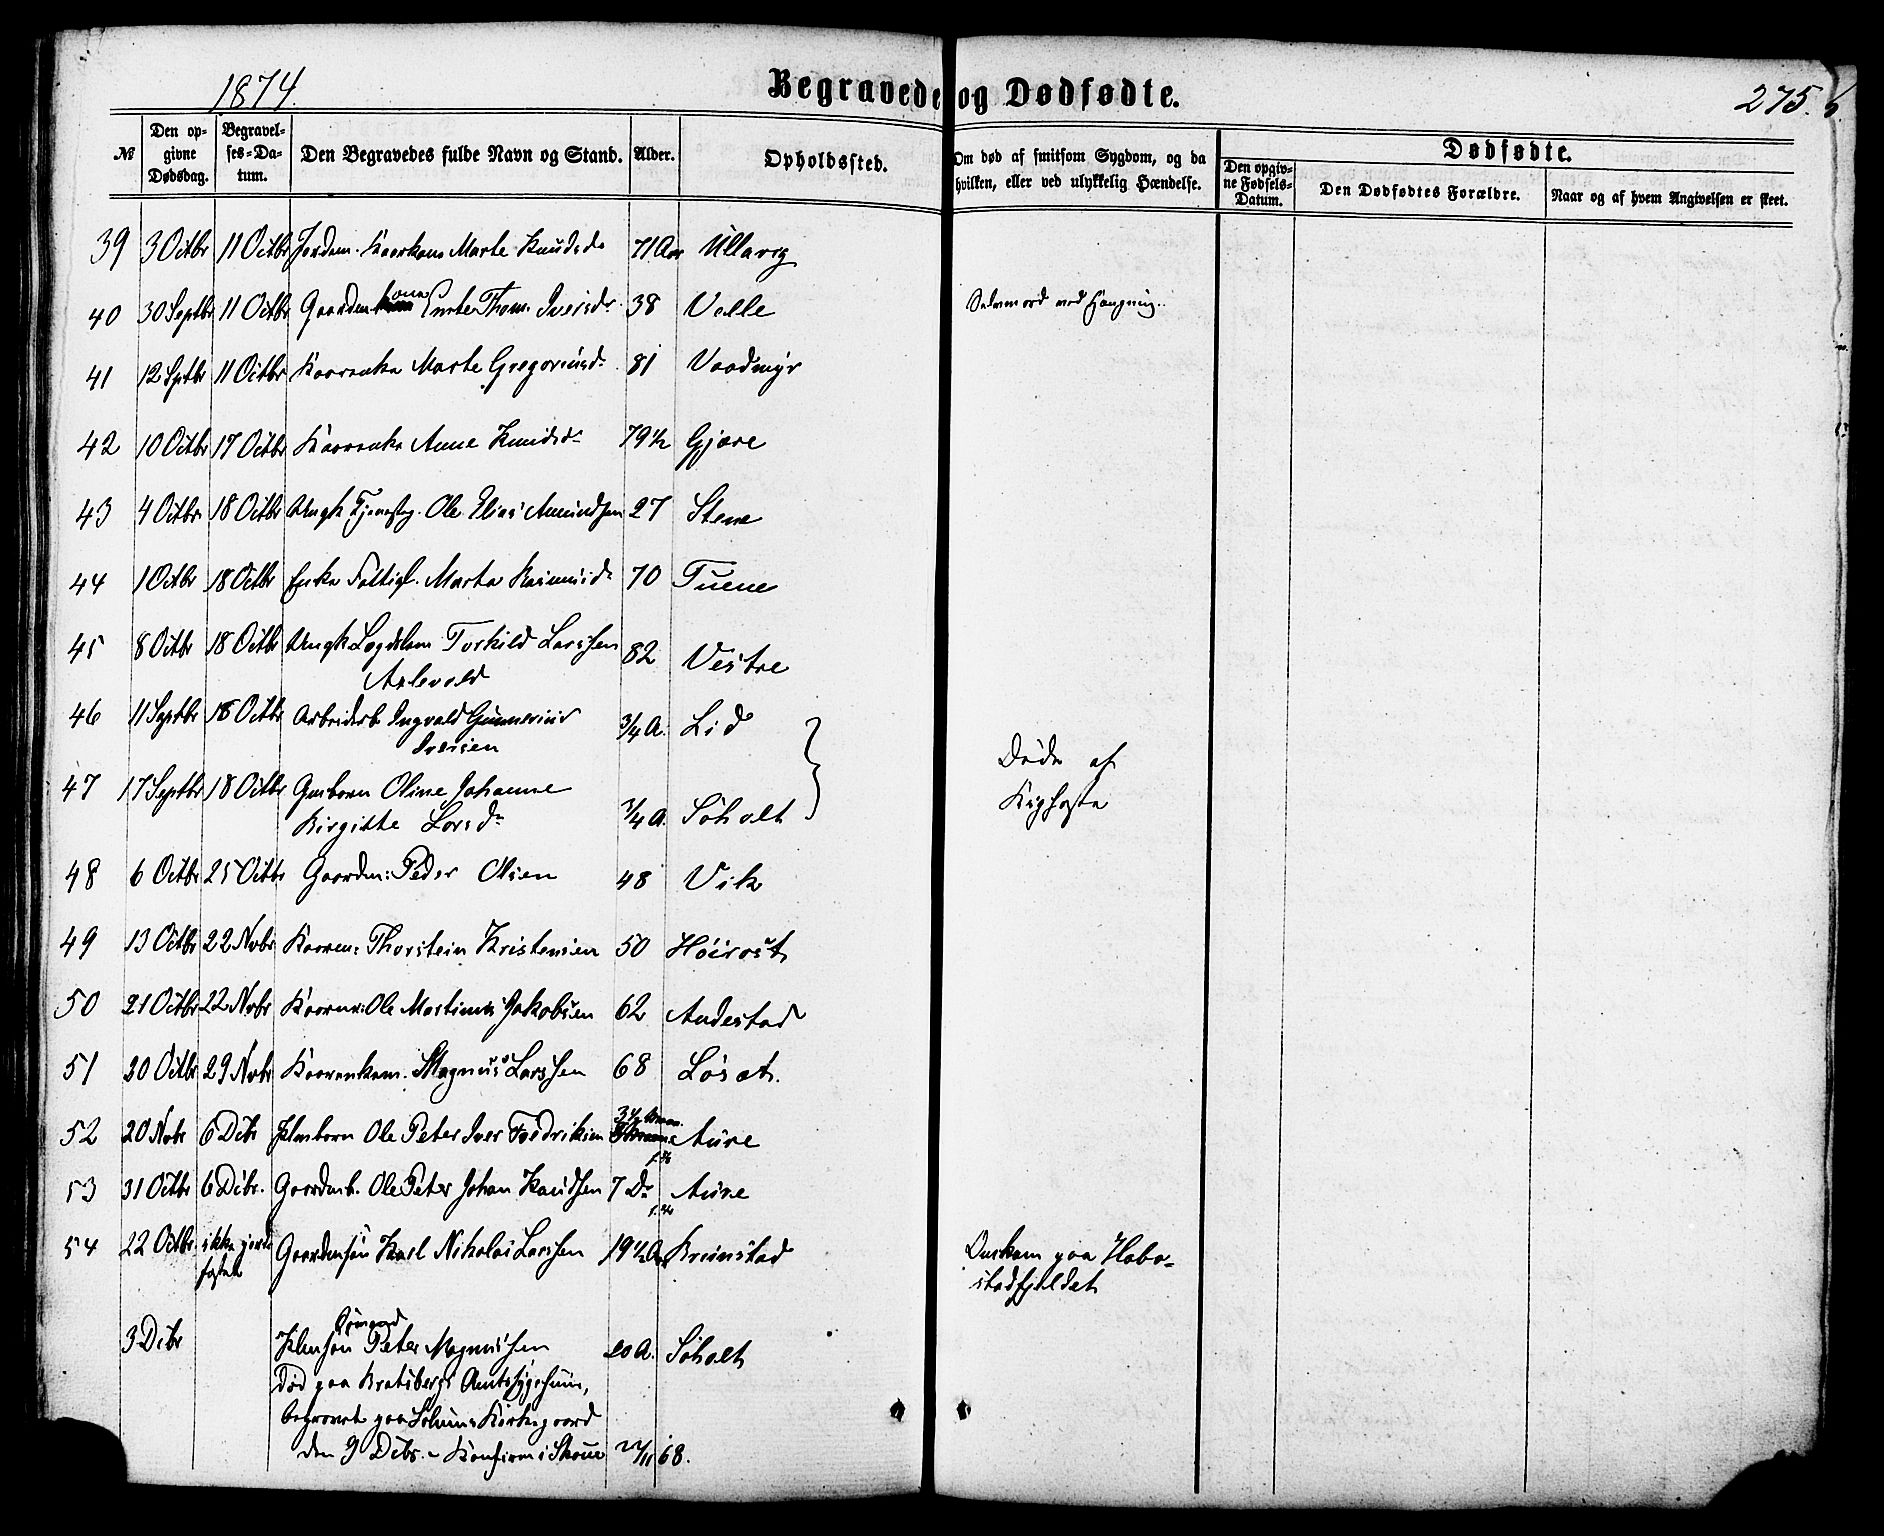 1874.
Begravede og Dødfødte.
275. b.
№
Den opgivne Dødsdag.
Begravelses-Datum.
Den Begravedes fulde Navn og Stand.
Alder.
Opholdssted.
Om død af smitsom Sygdom, og da hvilken, eller ved ulykkelig Hændelse.
Dødfødte.
Den opgivne Fødsels-Datum.
Den Dødfødtes Forældre.
Naar og af hvem Angivelsen er skeet.
39 3 Octbr 11 Octbr Marte Knudsdr 71 Aar Ullavig
40 30 Septbr 11 Octbr Gaardmkone Thom. Iversdr. 38 Velle Selvmord ved Hængning.
41 12 Sptbr 11 Octbr Kaarenke Marte Gregoriusdr 81 Vaadmyr
42 10 Octbr 17 Octbr Kaarenke Anne Knudsdr 79½ Gjære
43 4 Octbr 18 Octbr Ungk Ole Elias Amundsen 27 Stene
44 1 Octbr 18 Octbr Enke Fattigl. Marta Rasmusdr 70 Tuene
45 8 Octbr 18 Octbr Ungk Lægdslem Torkild Larssen 82 Vestre
46 11 Septbr 18 Octbr Arbeiderb Ingvald Gunnerius ¾ A. Lid
Iversen
Døde af
47 17 Septbr 18 Octbr Gmbarn Oline Johanne
Kighoste
Birgitte Larsdr ¾ A. Søholt
48 6 Octbr 25 Octbr Gaardm: Peder Olsen 48 Vik
49 13 Octbr 22 Nvbr Kaarm: Thorstein Kristensen 50
50 21 Octbr 22 Nvbr Kaarm: Ole Martinus Jakobsen 62 Andestad
51 20 Octbr 29 Nvbr Kaarenkem. Magnus Larssen 68 Løset.
52 20 Nvbr 6 Dcbr Hmbarn Ole Peter Iver Fredriksen 3½ Aure
53 31 Octbr 6 Dcbr. Gaardmb. Ole Peter Johan Knudsen 7 Do Aure
54 22 Octbr ikke jordfæstet Gaardmsøn Karl Nikolai Larssen 19½ A. Kreimstad Omkom paa
stadfjeldet
3 Dcbr Hmsøn Peter Magnussen 20 A. Søholt
Død paa Bratsbergs Amtssygehuus,
begravet paa Solums Kirkegaard
den 9 Dcbr. – Konfirm i Skoue 22/11 68.